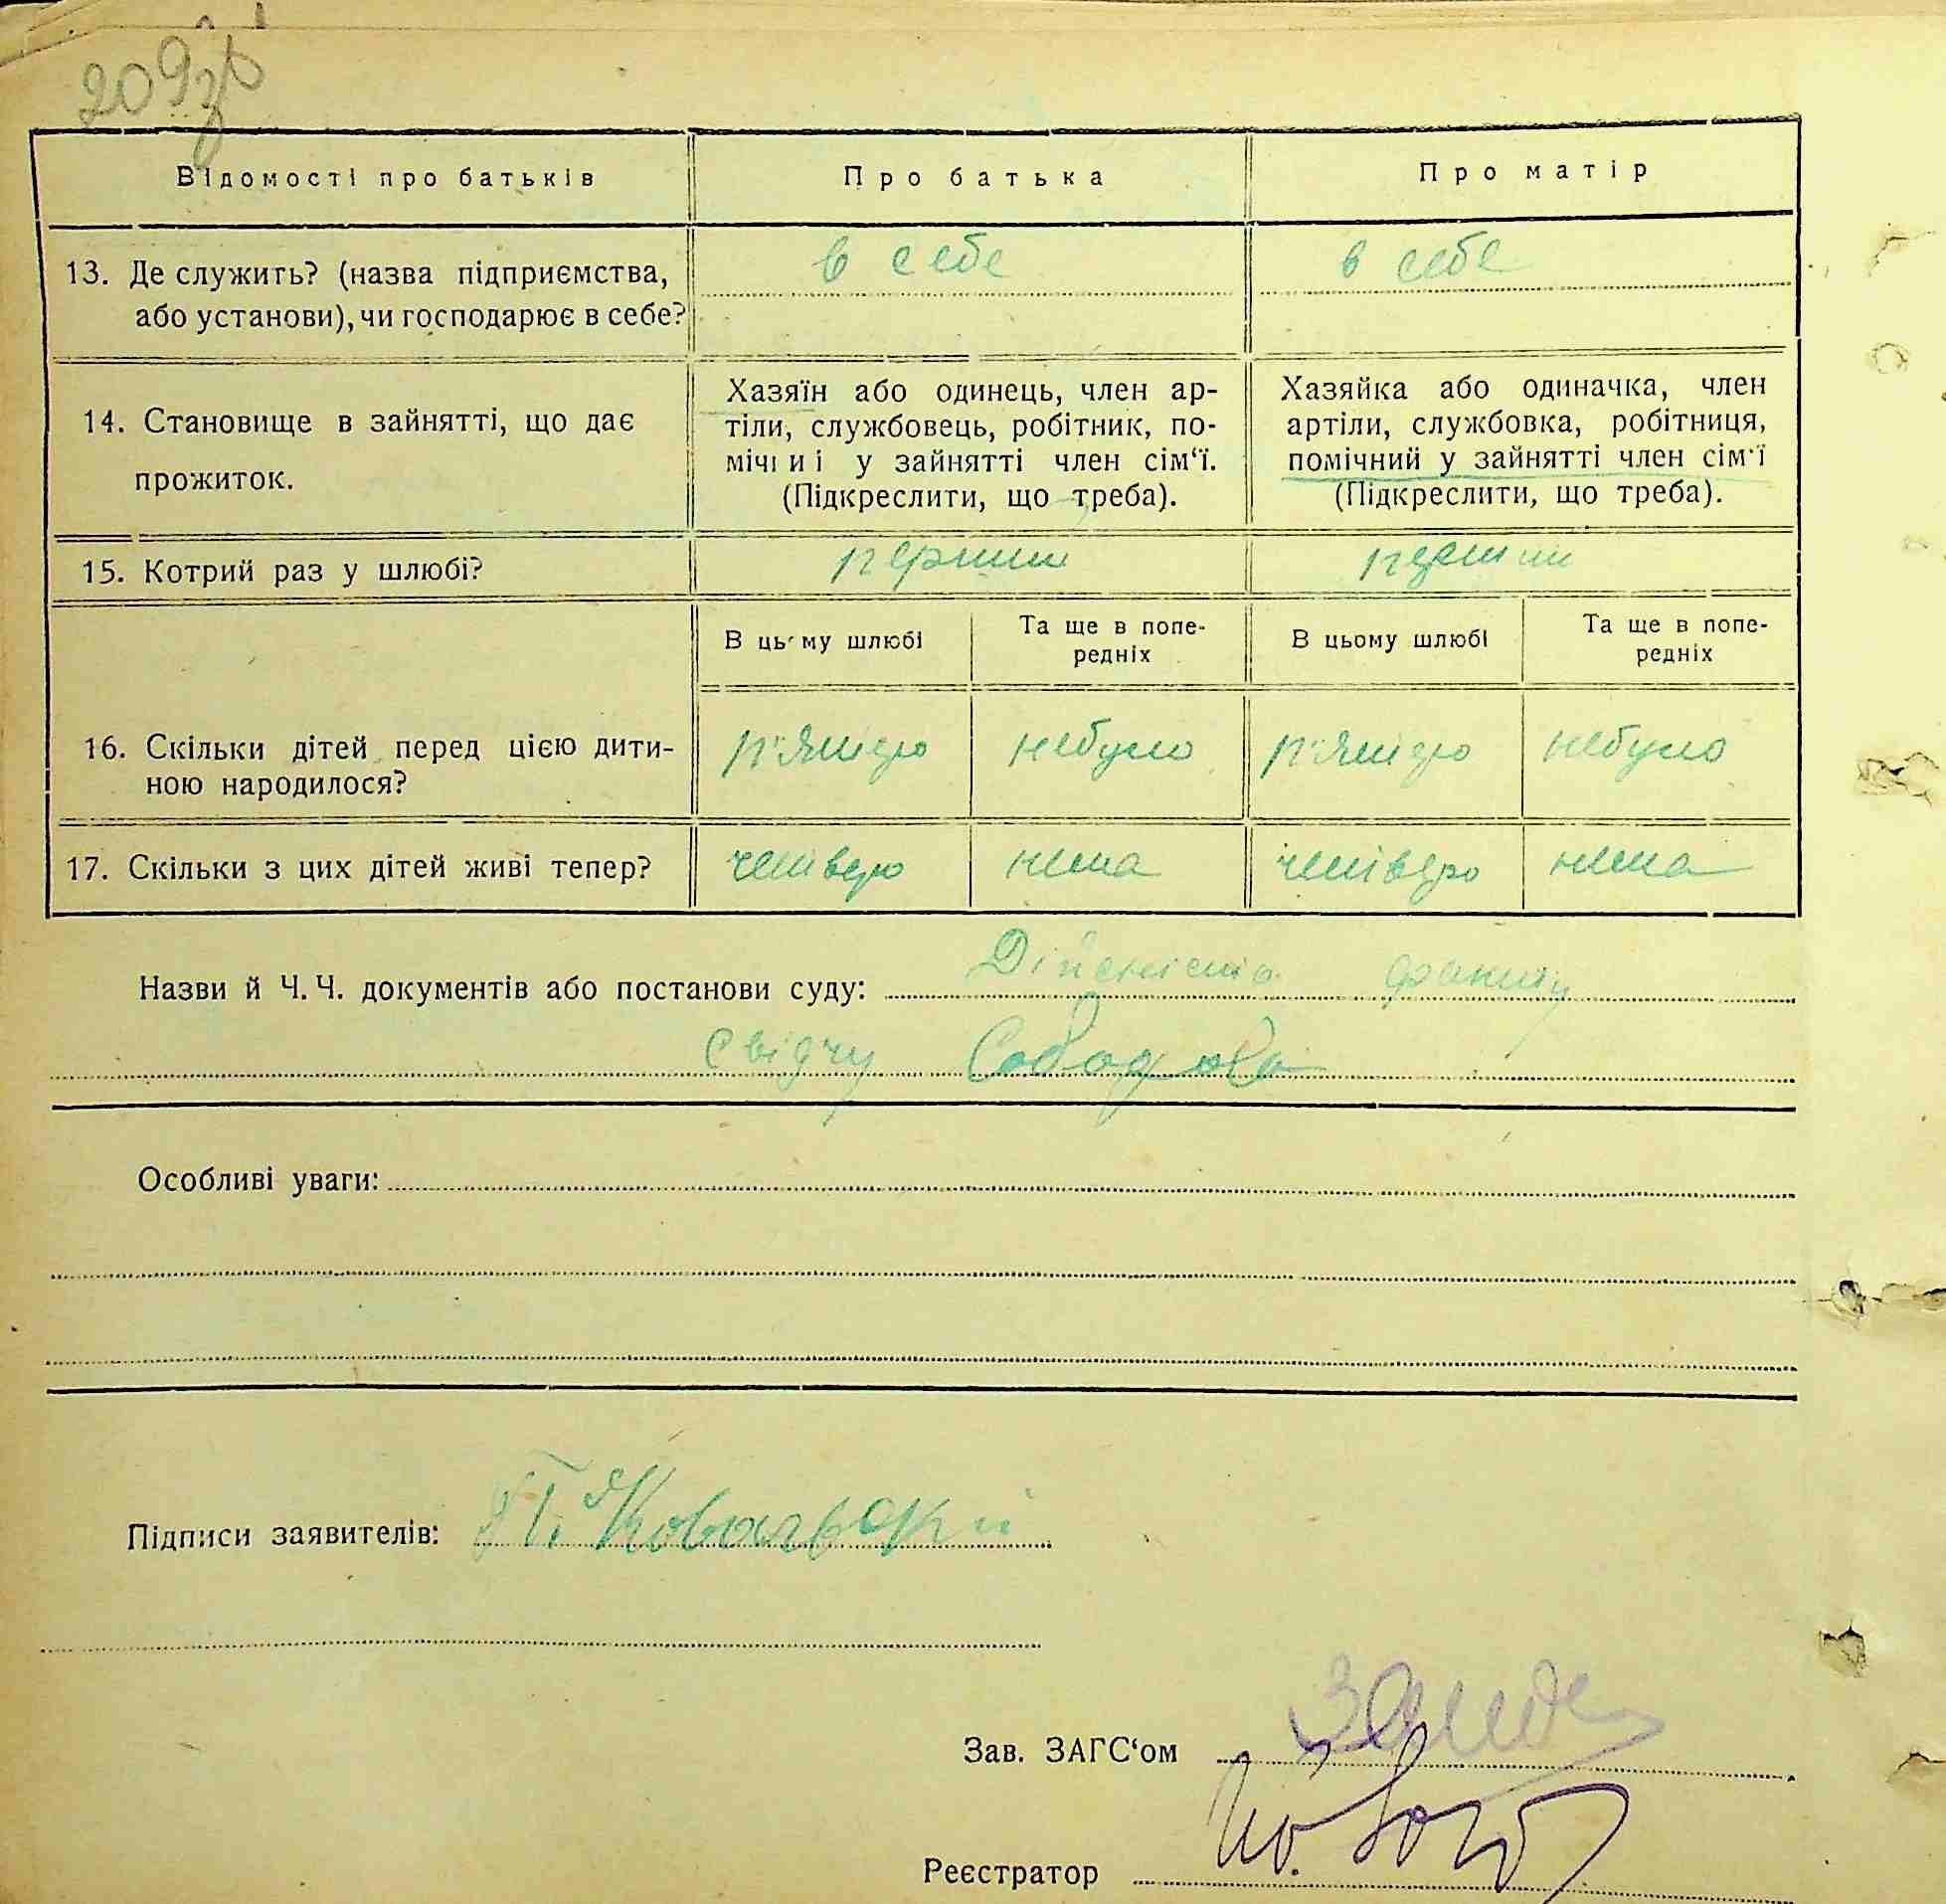 209зв
Відомості про батьків
Про батька
Про матір
13. Де служить? (назва підприємства,
або установи), чи господарює в себе?
в себе
в себе
14. Становище в зайнятті, що дає
прожиток.
Хазяїн або одинець, член ар-
тіли, службовець, робітник, по-
мічний у зайнятті член сім‘ї.
(Підкреслити, що треба).
Хазяйка або одиначка, член
артіли, службовка, робітниця,
помічний у зайнятті член сім‘ї
(Підкреслити, що треба).
15. Котрий раз у шлюбі?
перший
перший
В цьому шлюбі
Та ще в попе-
редніх
В цьому шлюбі
Та ще в попе-
редніх
16. Скільки дітей перед цією дити-
ною народилося?
п'ятеро
небуло
п'ятеро
небуло
17. Скільки з цих дітей живі тепер?
четверо
нема
четверо
нема
Назви й Ч. Ч. документів або постанови суду: Дійсність факту
свідчу
Особливі уваги:
Підписи заявителів: Ковальский
Зав. ЗАГС‘ом
Реєстратор